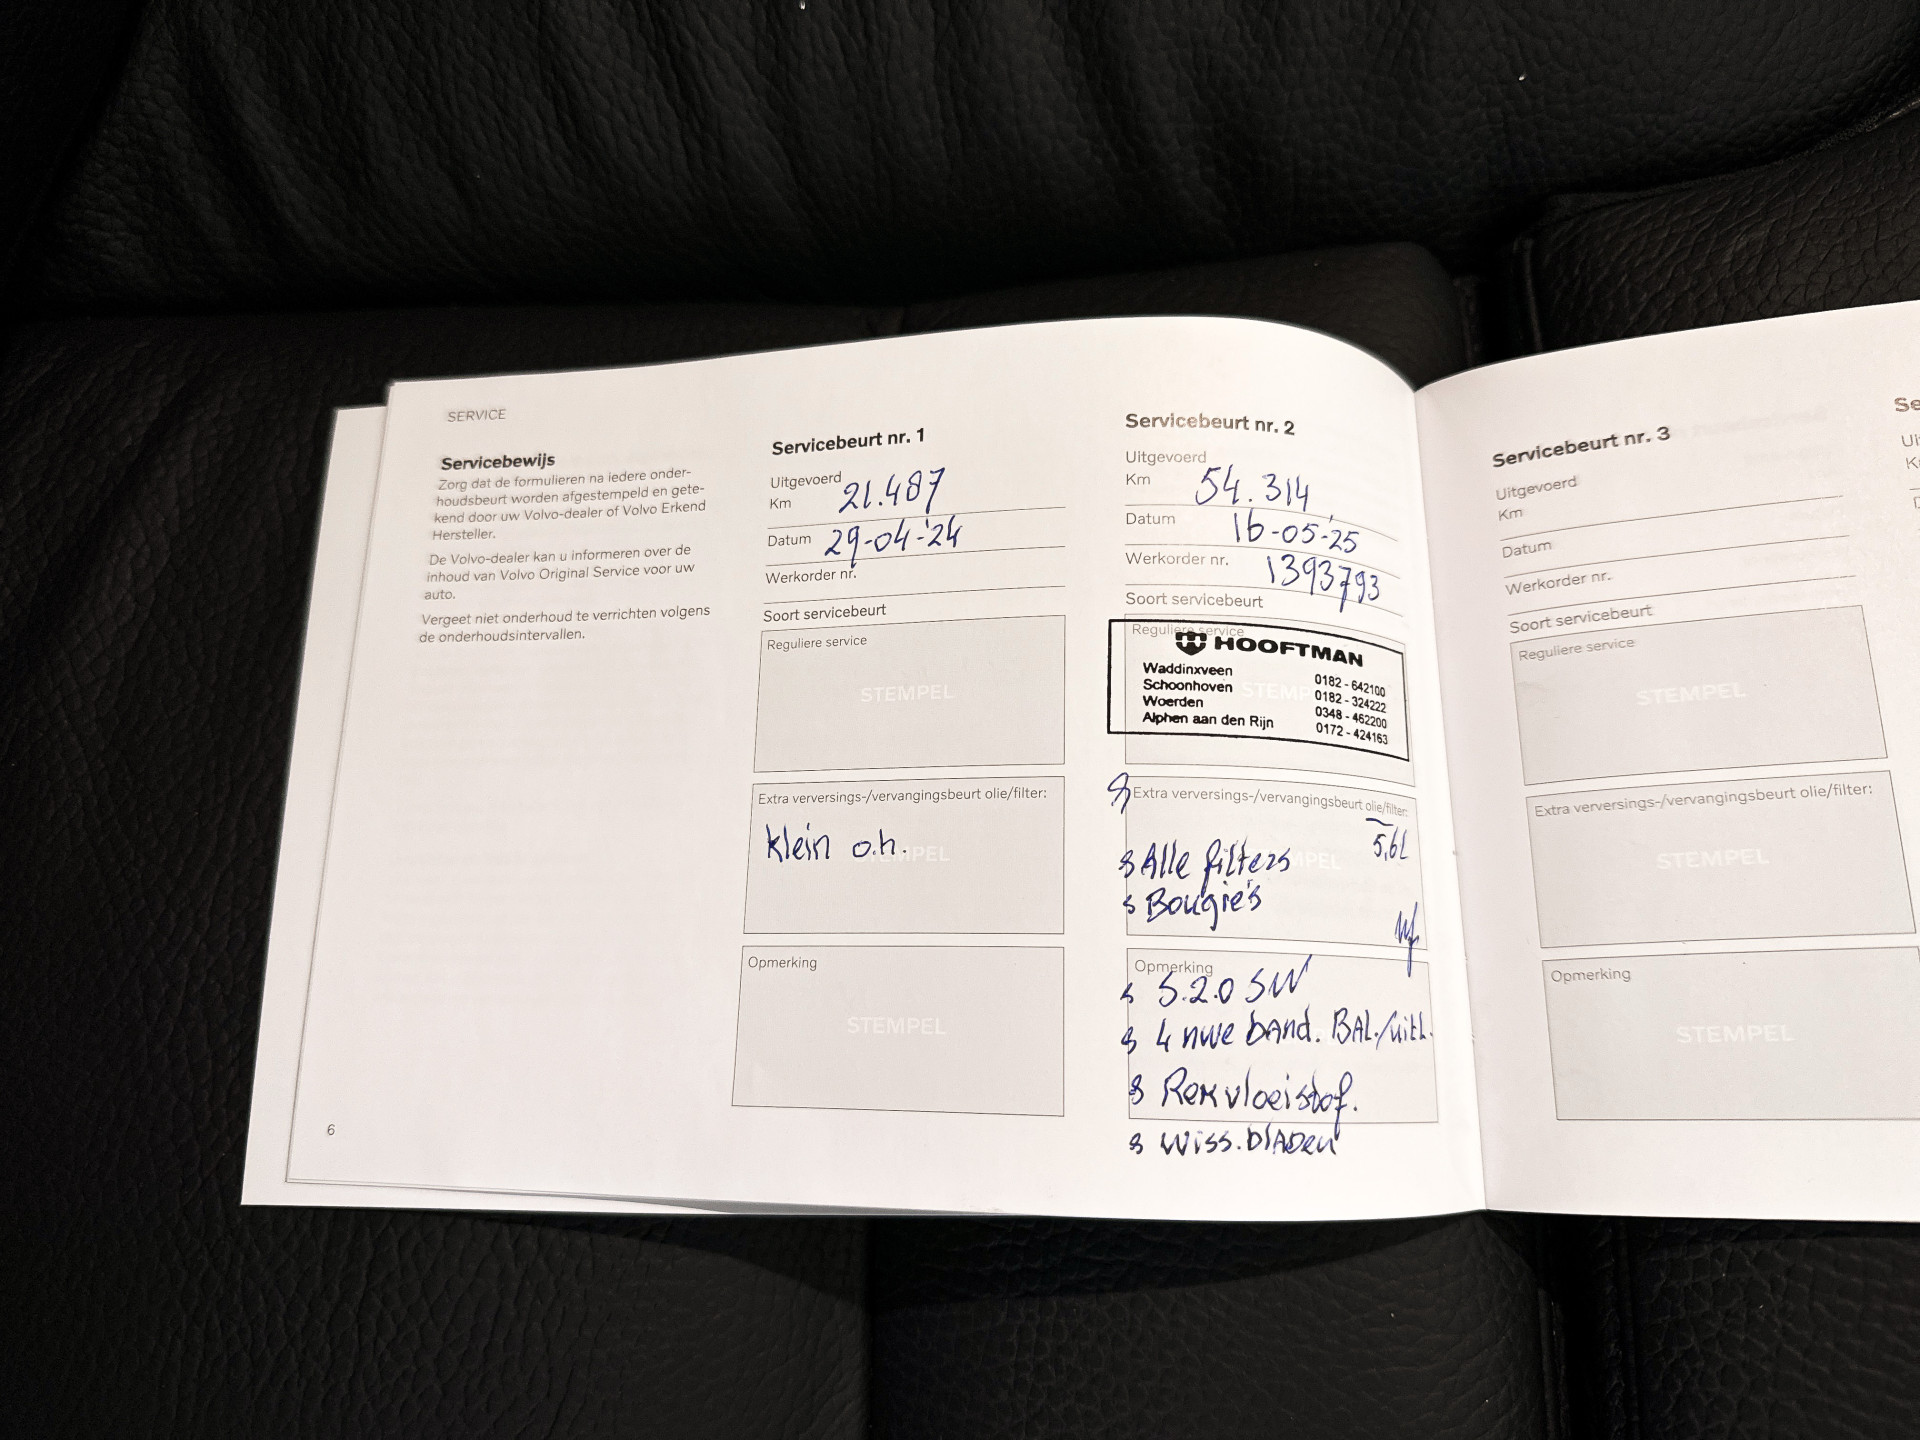 SERVICE
Servicebewijs
Zorg dat de formulieren na iedere onder-
houdsbeurt worden afgestempeld en gete-
kend door uw Volvo-dealer of Volvo Erkend
Hersteller.
De Volvo-dealer kan u informeren over de
inhoud van Volvo Original Service voor uw
auto.
Vergeet niet onderhoud te verrichten volgens
de onderhoudsintervallen.
6
Servicebeurt nr. 1
Uitgevoerd
Km 21.487
Datum 29-04-'24
Werkorder nr.
Soort servicebeurt
Reguliere service
STEMPEL
Extra verversings-/vervangingsbeurt olie/filter:
klein o.h.
STEMPEL
Opmerking
STEMPEL
Servicebeurt nr. 2
Uitgevoerd
Km 54.314
Datum 16-05-'25
Werkorder nr. 1393793
Soort servicebeurt
Reguliere service
HOOFTMAN
Waddinxveen 0182-642100
Schoonhoven 0182-324222
Woerden 0348-462200
Alphen aan den Rijn 0172-424163
STEMPEL
Extra verversings-/vervangingsbeurt olie/filter:
5,6L
Alle filters
Bougie's
STEMPEL
Opmerking
S.2.0 SW
4 nwe band. BAL./uitl.
Remvloeistof.
Wiss.bladen
Servicebeurt nr. 3
Uitgevoerd
Km
Datum
Werkorder nr.
Soort servicebeurt
Reguliere service
STEMPEL
Extra verversings-/vervangingsbeurt olie/filter:
STEMPEL
Opmerking
STEMPEL